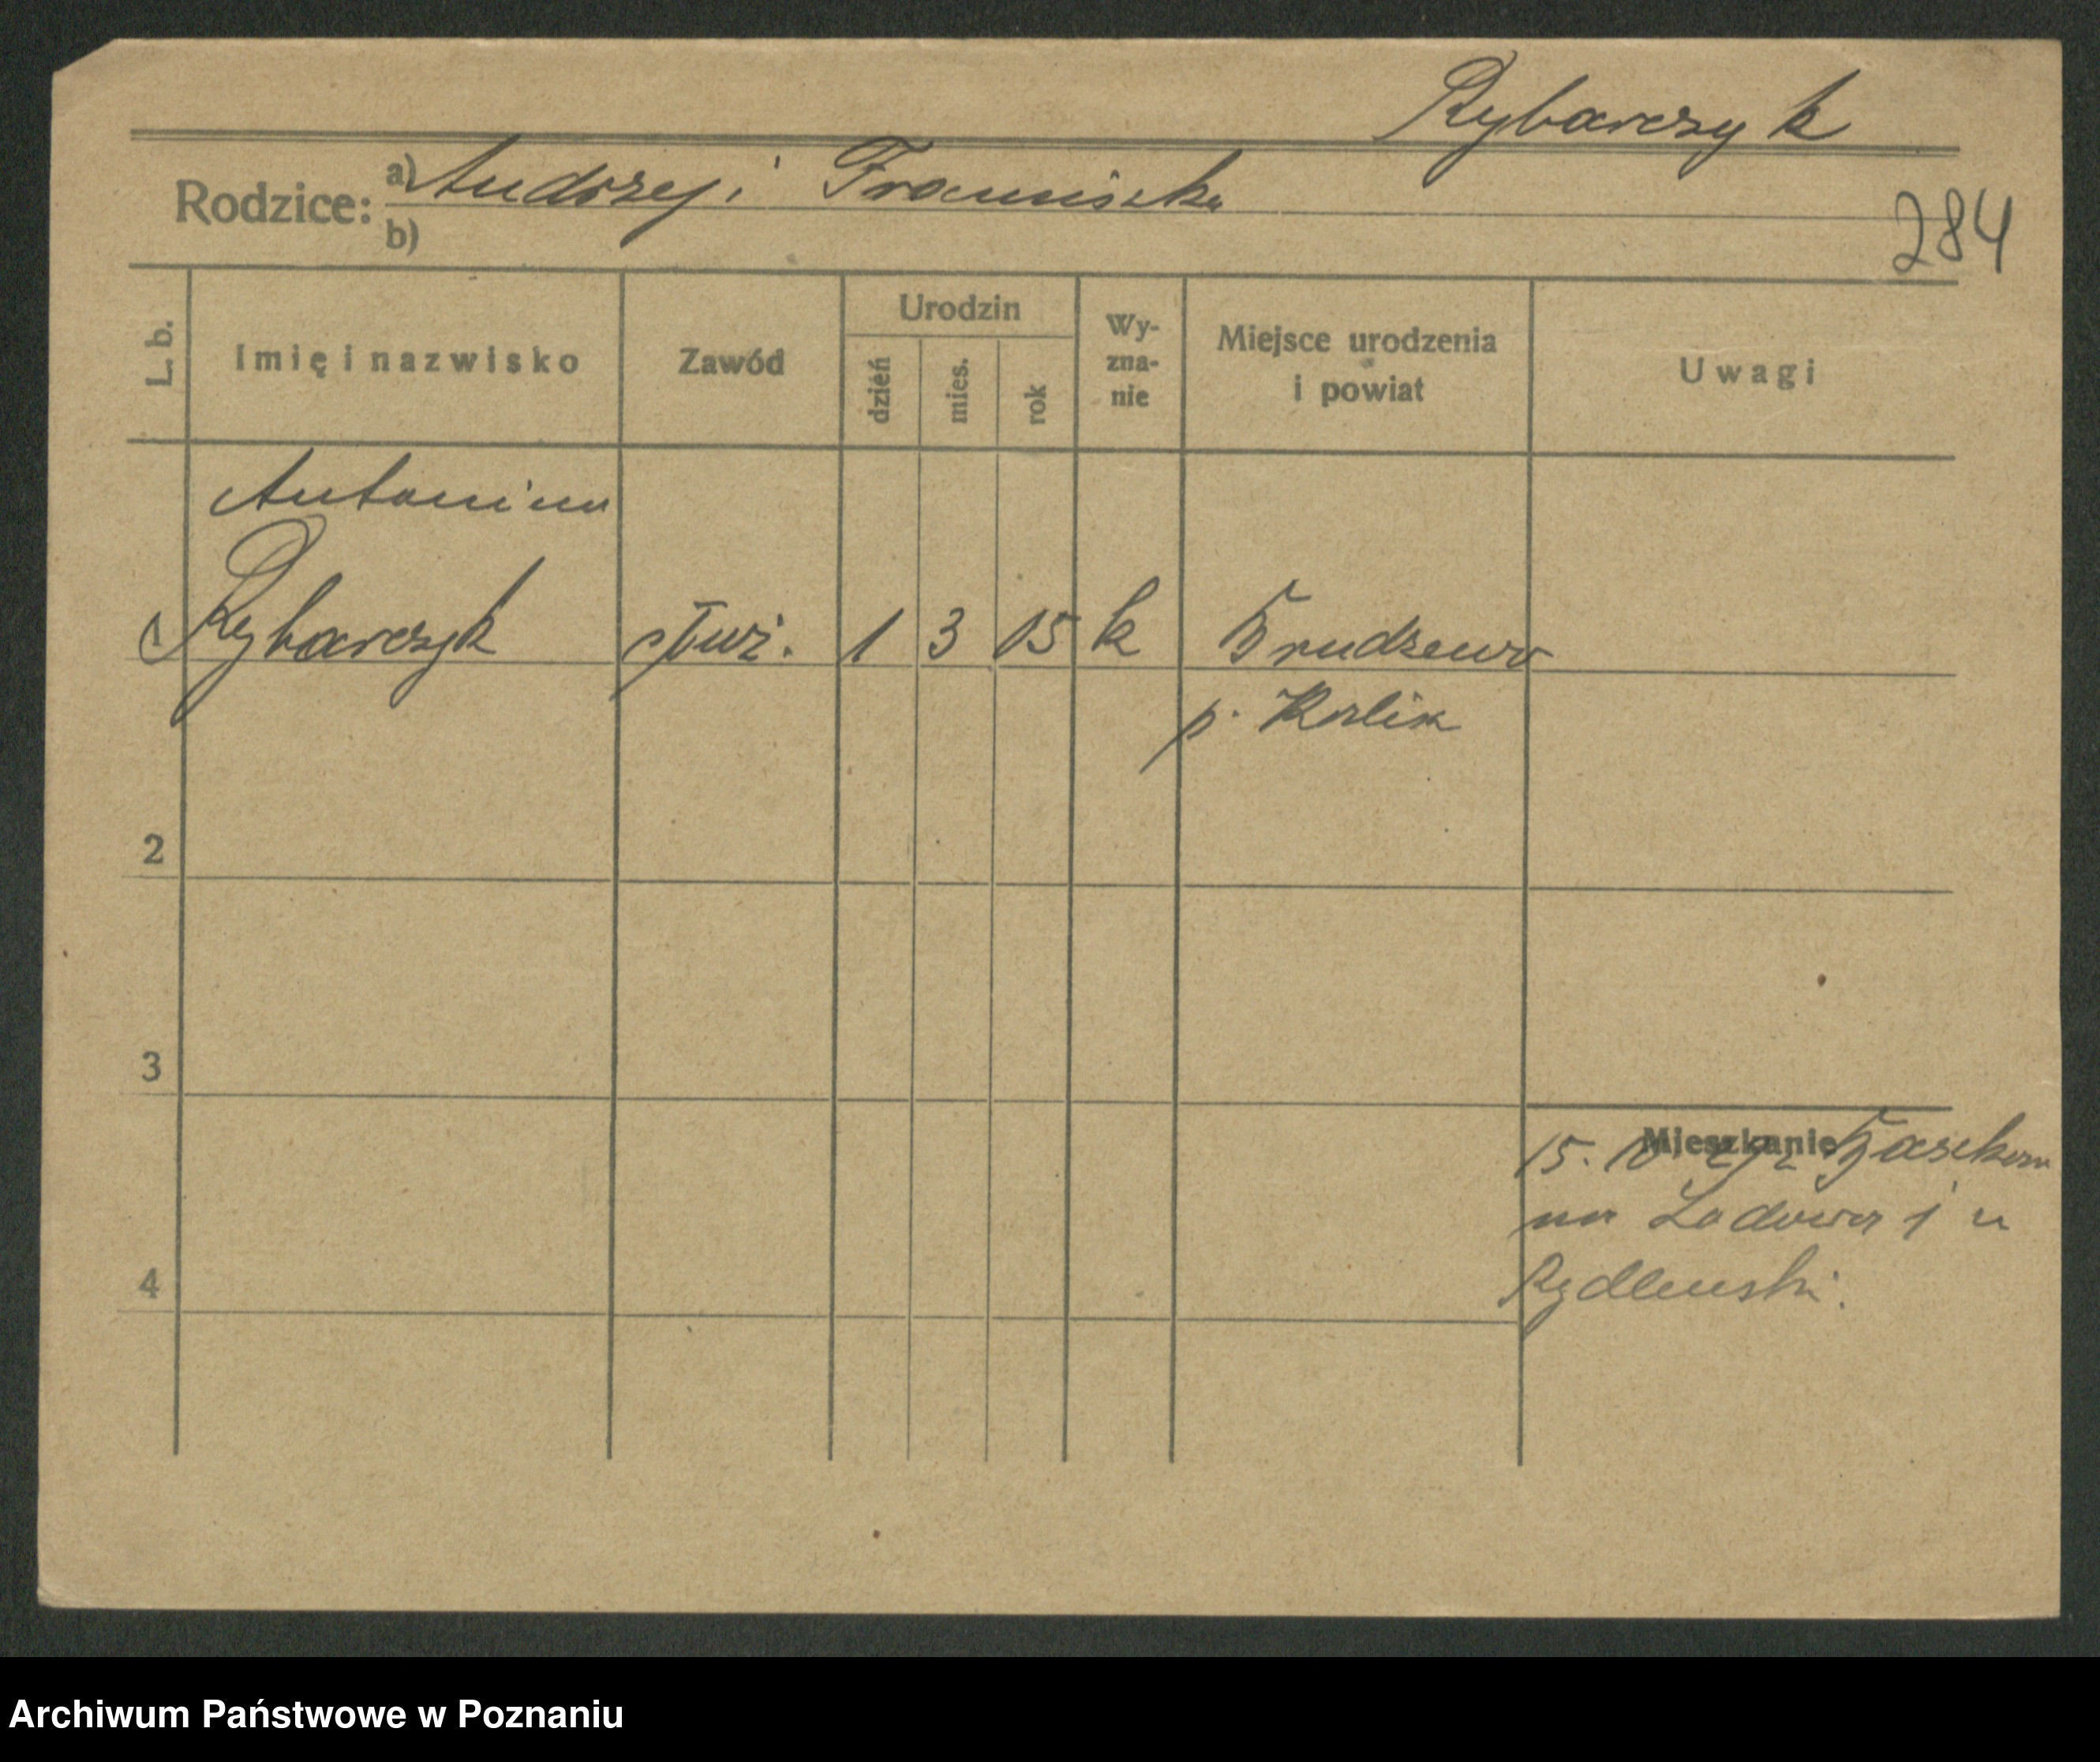 Rybarczyk
Rodzice: a) Andrzej i Franciszka
b)
284
L. b.
Imię i nazwisko
Zawód
Urodzin
dzień
mies.
rok
Wy-
zna-
nie
Miejsce urodzenia
i powiat
Uwagi
Antonina
1 Rybarczyk służ. 1 3 15 k Brudzewo
p. Kalisz
2
3
Mieszkanie
15. 10
na Ladowa 1 u
4
Rydlewski.
Archiwum Państwowe w Poznaniu